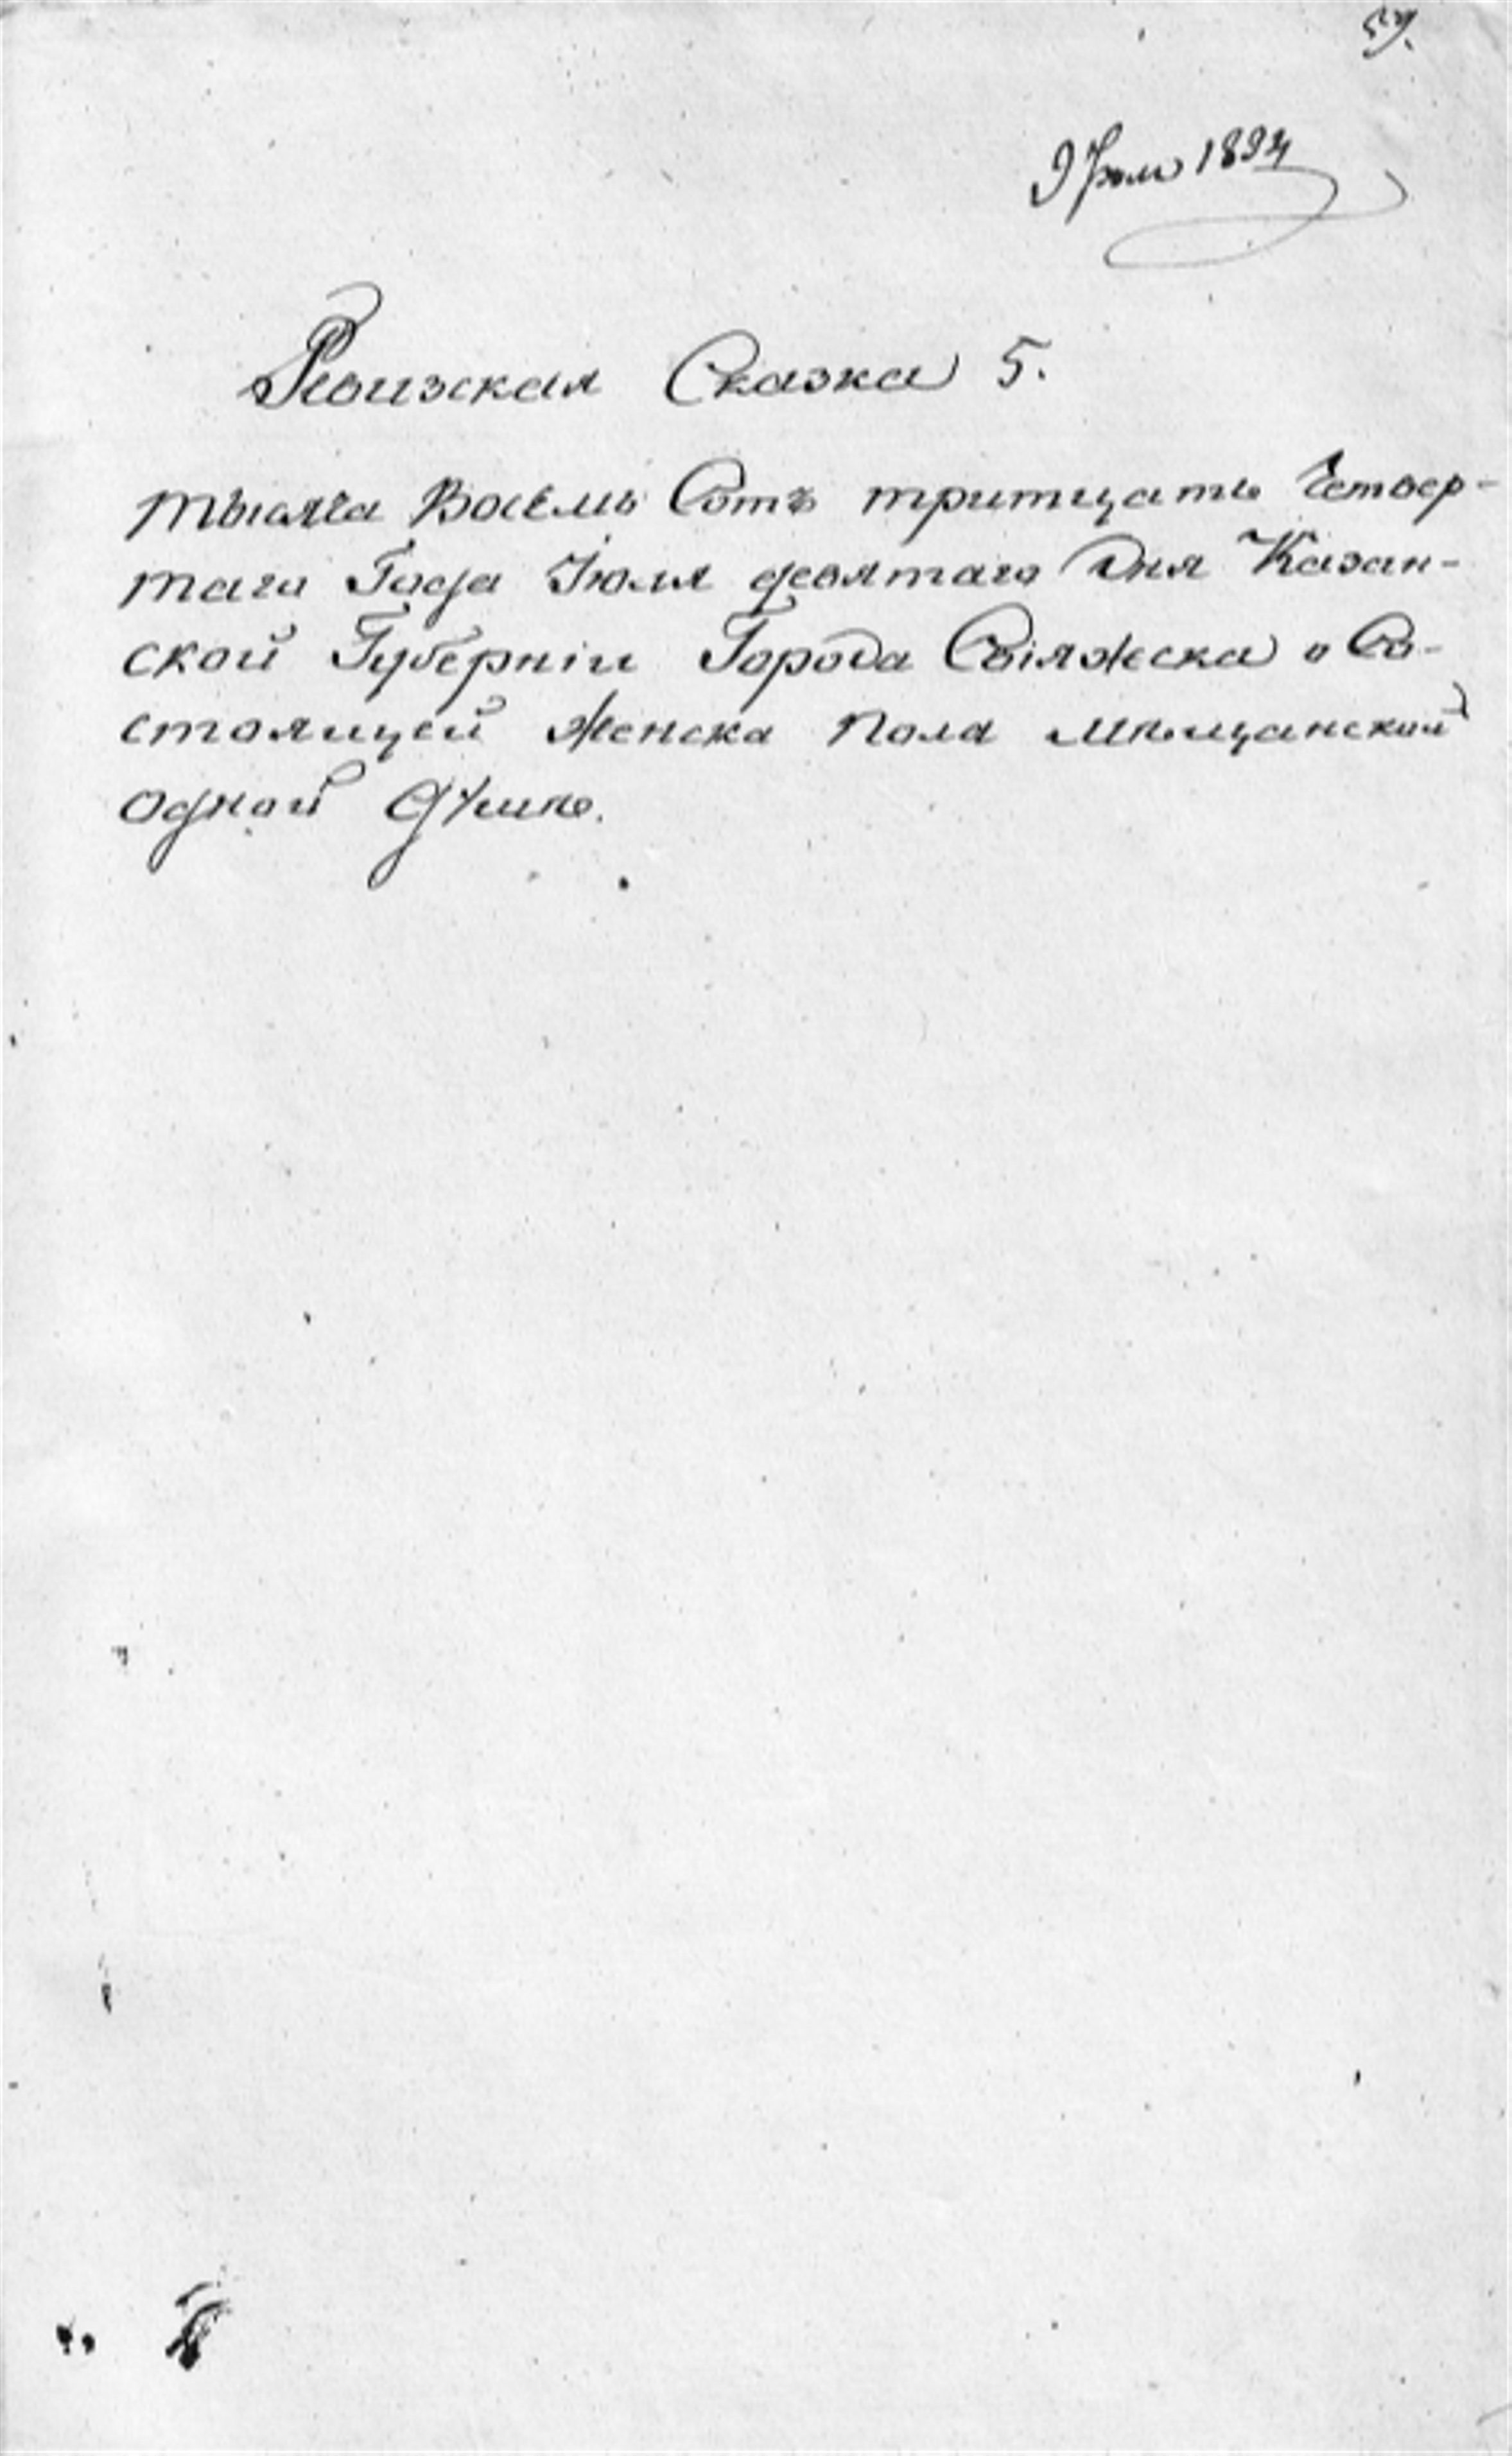 57.
9 Июля 1834
Ревизская Сказка 5.
тысяча Восемь Сотъ тритцать Четвер-
таго Года Июля девятаго Дня Казан-
ской Губерніи Города Свіяжска о Со-
стоящей женска пола мѣщанской
одной душѣ.